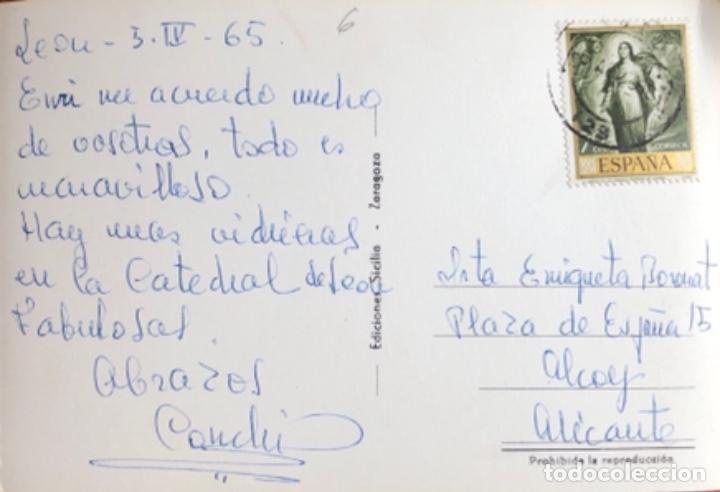 León - 3-IV-65.
6
Enri me acuerdo mucho
de vosotras, todo es
maravilloso.
Hay unas vidrieras
en la Catedral de León
Fabulosas.
Abrazos
Conchi
Ediciones Sicilia - Zaragoza
ESPAÑA
CORREOS
Srta Enriqueta Boronat
Plaza de España 15
Alcoy
Alicante
Prohibida la reproducción
todocoleccion.net